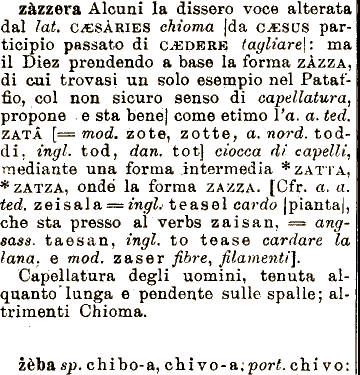 zàzzera Alcuni la dissero voce alterata
dal lat. CÆSÀRIES chioma |da CÆSUS par-
ticipio passato di CÆDERE tagliare|: ma
il Diez prendendo a base la forma ZÀZZA,
di cui trovasi un solo esempio nel Pataf-
fio, col non sicuro senso di capellatura,
propone e sta bene| come etimo l'a. a. ted.
ZATÂ [= mod. zote, zotte, a. nord. tod-
di, ingl. tod, dan. tot] ciocca di capelli,
mediante una forma intermedia *ZATTA,
*ZATZA, onde la forma ZAZZA. [Cfr. a. a.
ted. zeisala = ingl. teasel cardo |pianta|,
che sta presso al verbs zaisan, = ang-
sass. taesan, ingl. to tease cardare la
lana, e mod. zaser fibre, filamenti].
Capellatura degli uomini, tenuta al-
quanto lunga e pendente sulle spalle; al-
trimenti Chioma.
żèba sp. chibo-a, chivo-a; port. chivo: